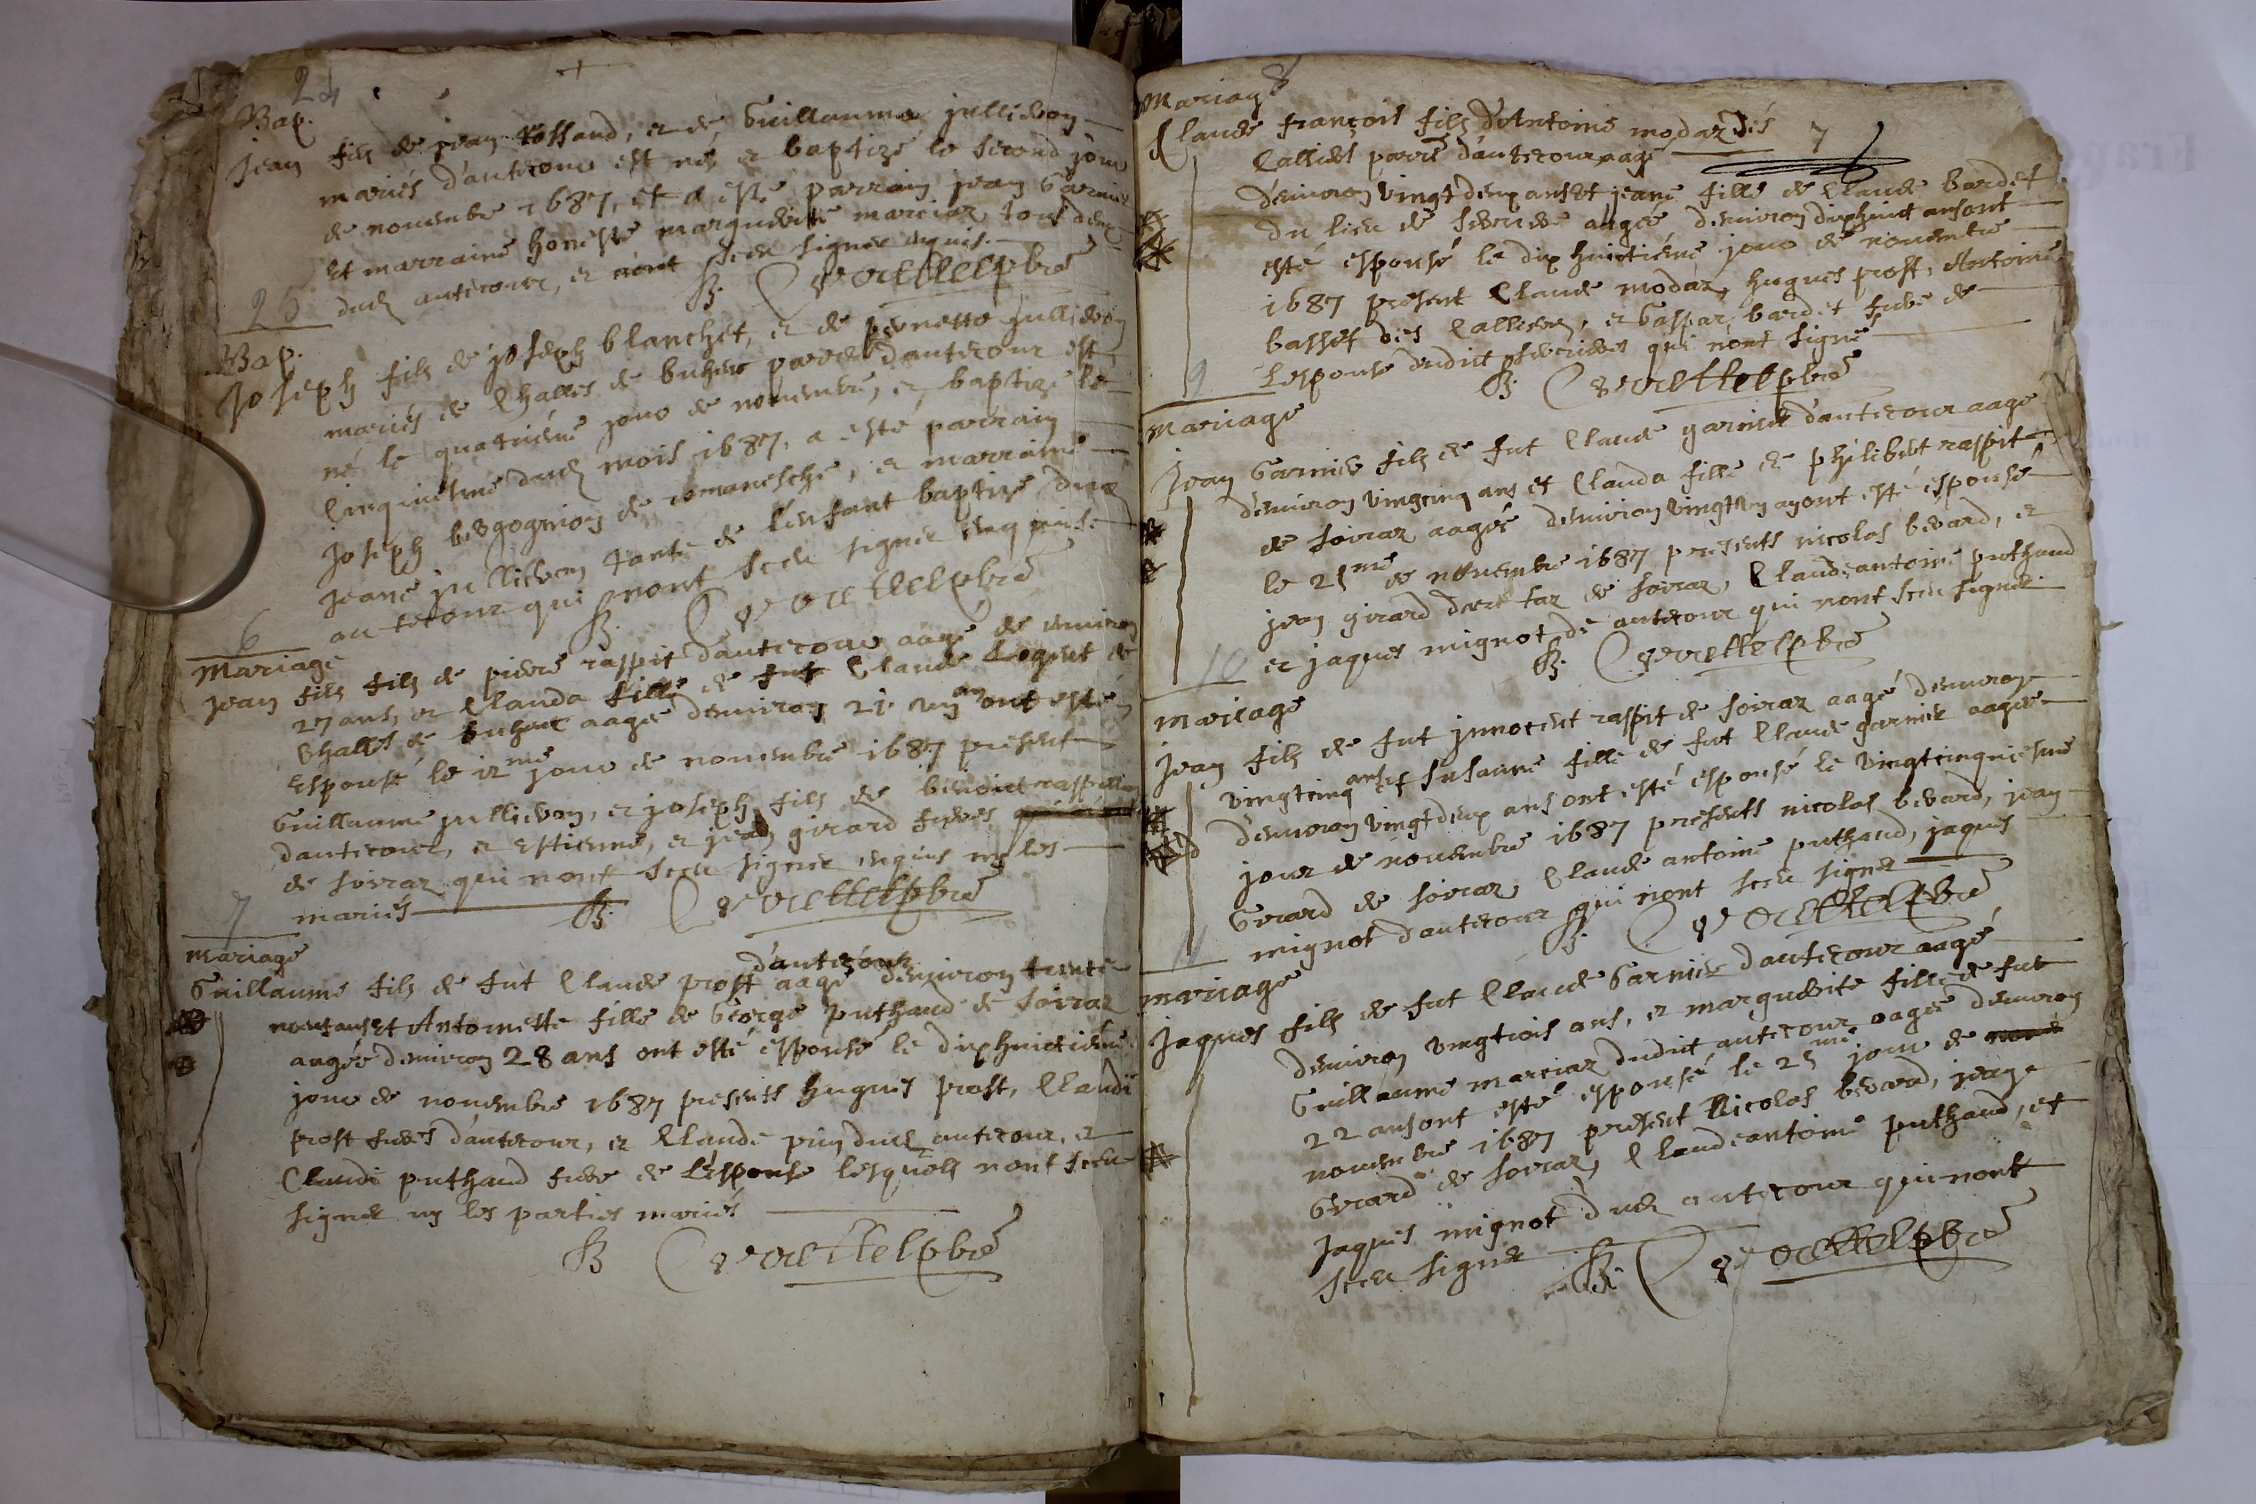 24
Bap.
Jean fils de jean rossand, et de Guillauma jullieron
mariés d'antecour est né, et baptizé le second jour
de nouembre 1687, et a esté parrain jean Garnier
et marraine honeste marguerite marciaz tous deux
dud antecour, et n'ont sceu signer enquis.
25
Bap.
Joseph fils de joseph blanchet, et de pernette jullieron
mariés de Challes de buhenc parre d'antecour est
né le quatrieme jour de nouembre, et baptizé le
cinquiesme dud mois 1687, a esté parrain
Joseph bergognion de romanesche, et marraine
jeane jullieron tante de l'enfant baptizé dud
antecour qui n'ont sceu signer enquis
6
Mariage
Jean fils fils de pierre raspit d'antecour aagé de enuiron
27 ans, et Clauda fille de fut Claude
Challes de buhenc aagée d'enuiron 21 ans ont esté
espousé le 12me jour de nouembre 1687 present
Guillaume jullieron, et joseph fils de benoict
d'antecour, et estienne, et jean girard freres
de soiraz qui n'ont sceu signer enquis ny les
mariés
7
mariage
d'antecour
Guillaume fils de fut Claude prost aagé d'enuiron trente
neuf ans et Antoinette fille de George puthaud de soiraz
aagée d'enuiron 28 ans ont esté espousé le dixhuictieme
jour de nouembre 1687 presents hugues prost, Claude
prost freres d'antecour, et Claude dud antecour, et
Claude puthaud frere de l'espouse lesquels n'ont sceu
signer ny les parties mariés
8
Mariage
7
Claude françois fils d'Antoine modaz des
Callieres parre d'antecour aagé
d'enuiron vingt deux ans et jeane fille de Claude bardet
du lieu de aagée d'enuiron dixhuict ans ont
esté espousé le dix huictieme jour de nouembre
1687 present Claude modaz, hugues prost, Antoine
basset des Callieres, et Gaspar bardet frere de
l'espouse dudict qui n'ont signé
9
Mariage
Jean Garnier fils de fut Claude garnier d'antecour aagé
d'enuiron vingcinq ans et Clauda fille de philibert raspit
de soiraz aagée d'enuiron vingt ont esté espousé
le 25me de nouembre 1687 presents nicolas berard, et
jean girard de soiraz, Claudeantoine puthaud
et jaques mignot de antecour qui n'ont sceu signer
10
mariage
Jean fils de fut jnnocent raspit de soiraz aagé d'enuiron
vingtcinq ans et susanne fille de fut Claude garnier aagée
d'enuiron vingtdeux ans ont esté espousé le vingtcinquiesme
jour de nouembre 1687 presents nicolas berard, jean
Girard de soiraz, Claude antoine puthaud, jaques
mignot d'antecour qui n'ont sceu signer
11
mariage
Jaques fils de fut Claude Garnier d'antecour aagé
d'enuiron vingtrois ans, et marguerite fille de fut
Guillaume marciaz dudict antecour aagée d'enuiron
22 ans ont esté espousé le 25me jour de
nouembre 1687 present Nicolas berard, jean
Girard de soiraz, Claudeantoine puthaud, et
Jaques mignot dud antecour qui n'ont
sceu signer